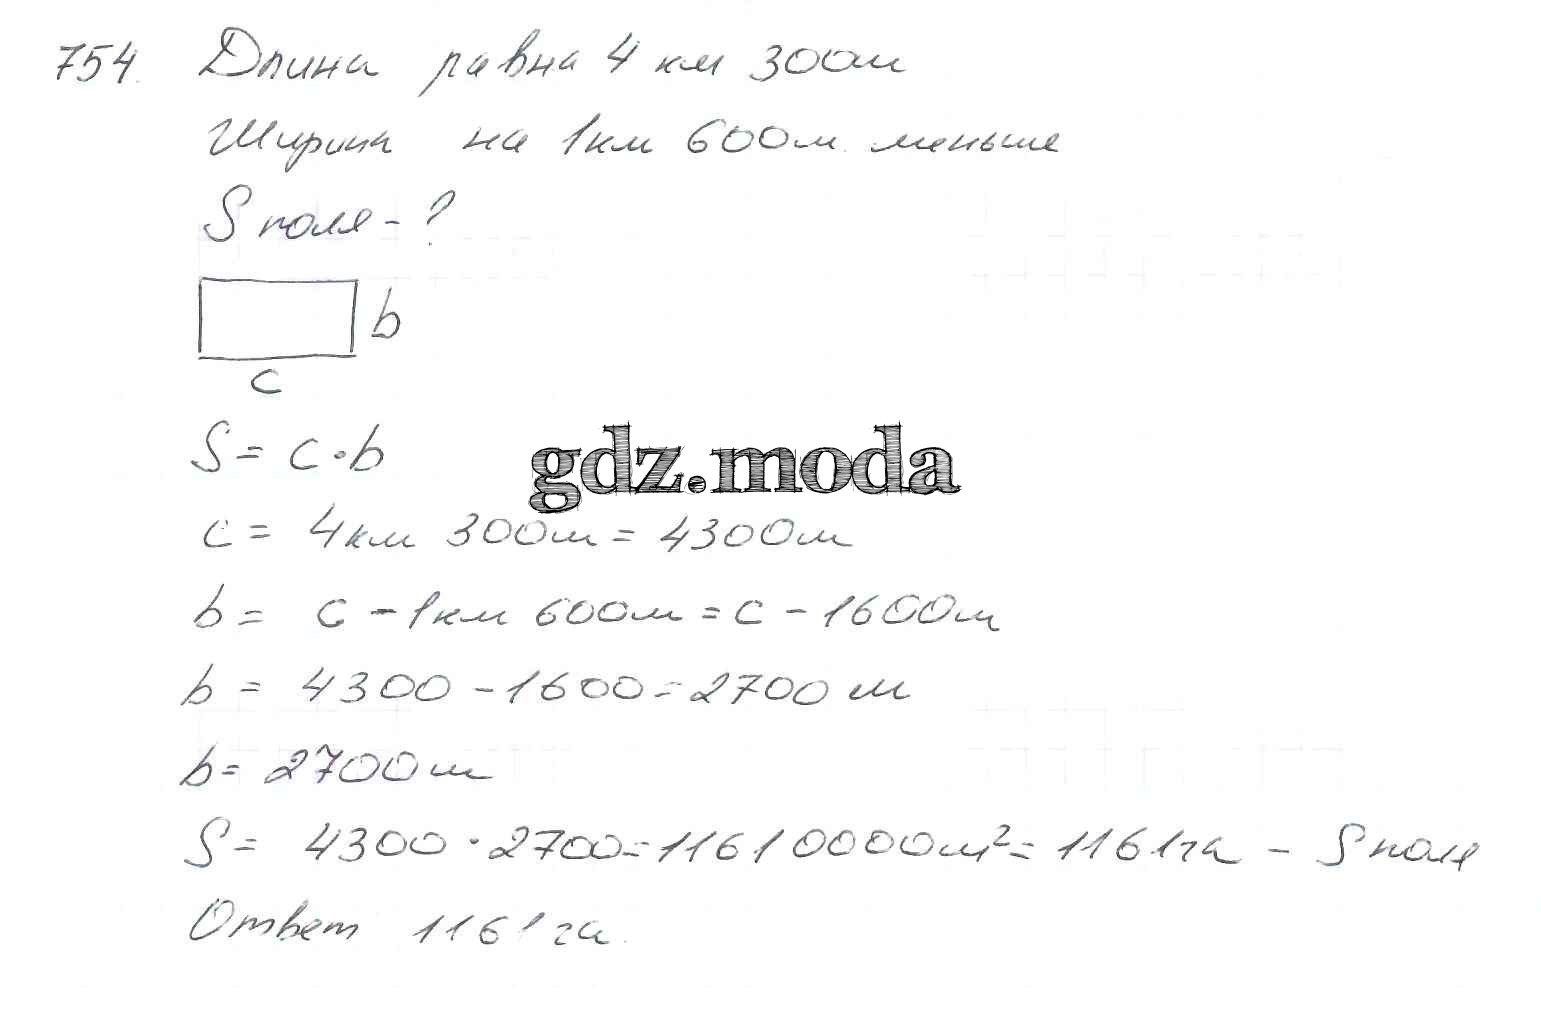 754. Длина равна 4 км 300м
Ширина на 1км 600м меньше
S поля - ?
b
c
S = c · b
gdz.moda
c = 4км 300м = 4300м
b = c - 1км 600м = c - 1600м
b = 4300 - 1600 = 2700 м
b = 2700м
S = 4300 · 2700 = 11610000м² = 1161га - S поля
Ответ 1161 га.